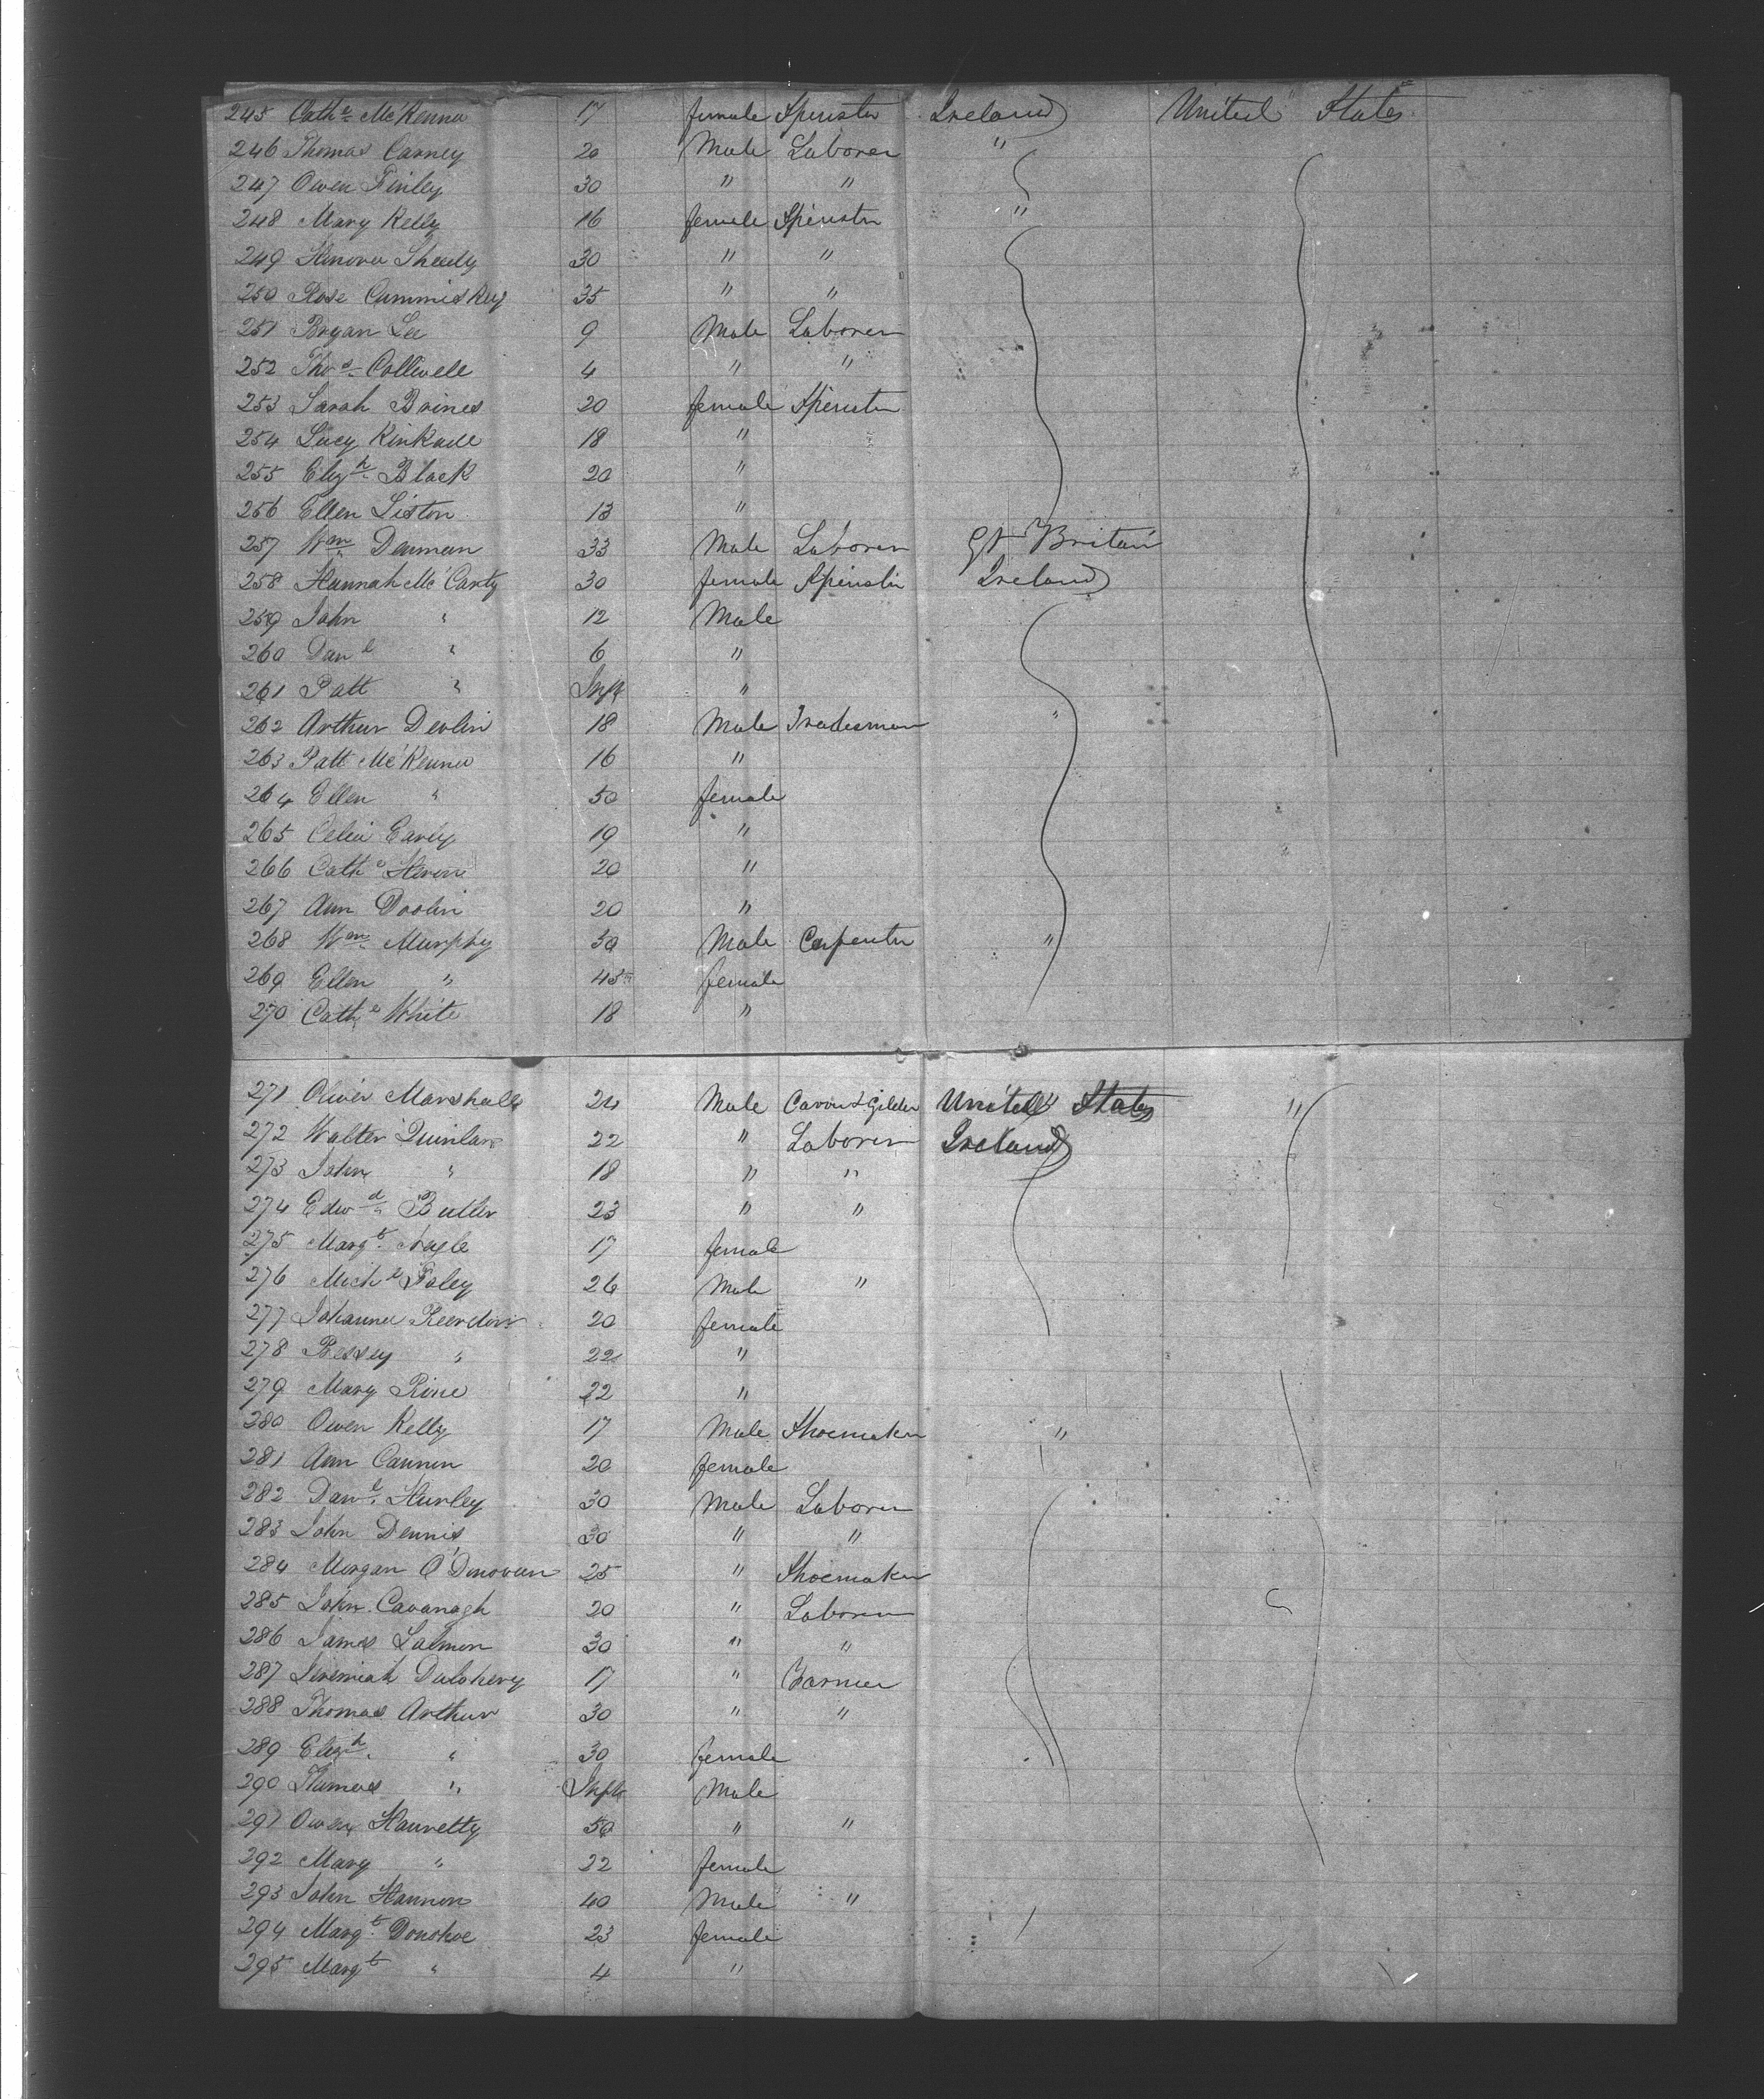 245 Cathe McKenna 17 female Spinster Ireland United States
246 Thomas Carney 20 Male Laborer "
247 Owen Finley 30 " "
248 Mary Kelly 16 female Spinster "
249 Honora Sheedy 30 " "
250 Rose Cummiskey 35 " "
251 Bryan Lee 9 Male Laborer
252 Thos Colliwell 4 " "
253 Sarah Brines 20 female Spinster
254 Lucy Kinkade 18 "
255 Elizh Black 20 "
256 Ellen Liston 13 "
257 Wm Denman 33 Male Laborer Gt Britain
258 Hannah McCarty 30 female Spinster Ireland
259 John " 12 Male
260 Danl " 6 "
261 Patt " Inft "
262 Arthur Devlin 18 Male Tradesman "
263 Patt McKenna 16 "
264 Ellen " 50 female
265 Celia 19 "
266 Cathe 20 "
267 Ann Doolin 20 "
268 Wm Murphy 30 Male Carpenter "
269 Ellen " 45 female
270 Cathe White 18 "
271 Oliver Marshall 24 Male Carver & Gilder United States "
272 Walter Quinlan 22 " Laborer Ireland
273 John " 18 " "
274 Edwd Butler 23 " "
275 Margt Nagle 17 female
276 Michl Foley 26 Male "
277 Johanna Reardon 20 female
278 Bessey " 22 "
279 Mary Rine 22 "
280 Owen Kelly 17 Male Shoemaker "
281 Ann Cannon 20 female
282 Danl Hurley 30 Male Laborer
283 John Dennis 30 " "
284 Morgan O'Donovan 25 " Shoemaker
285 John Cavanagh 20 " Laborer
286 James Salmon 30 " "
287 Jeremiah 17 " Farmer
288 Thomas Arthur 30 " "
289 Elizh " 30 female
290 Thomas " Inft Male
291 Owen Hanretty 50 " "
292 Mary " 22 female
293 John Hannon 40 Male "
294 Margt Donohoe 23 female
295 Margt " 4 "